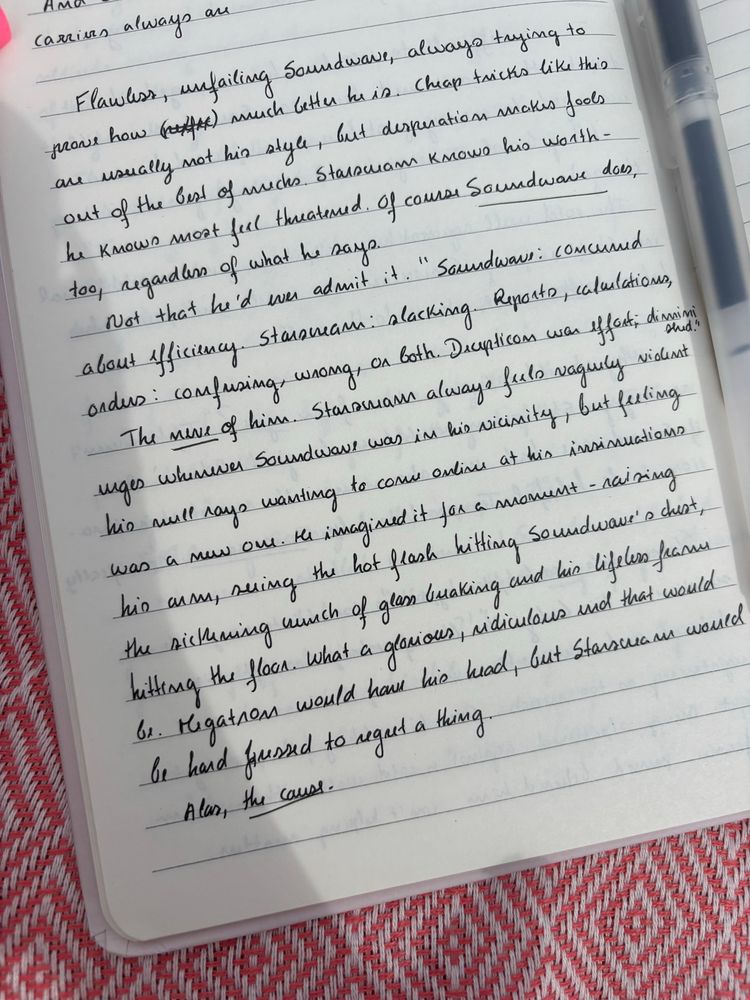 And
carriers always are
Flawless, unfailing Soundwave, always trying to
prove how () much better he is. Cheap tricks like this
are usually not his style, but desperation makes fools
out of the best of mechs. Starscream knows his worth -
he knows most feel threatened. Of course Soundwave does,
too, regardless of what he says.
Not that he'd ever admit it. "Soundwave: concerned
about efficiency. Starscream: slacking. Reports, calculations,
orders: confusing, wrong, or both. Decepticon war effort; dimini
shed."
The nerve of him. Starscream always feels vaguely violent
urges whenever Soundwave was in his vicinity, but feeling
his null rays wanting to come online at his insinuations
was a new one. He imagined it for a moment - raising
his arm, seeing the hot flash hitting Soundwave's chest,
the sickening crunch of glass breaking and his lifeless frame
hitting the floor. What a glorious, ridiculous end that would
be. Megatron would have his head, but Starscream would
be hard pressed to regret a thing.
Alas, the cause.